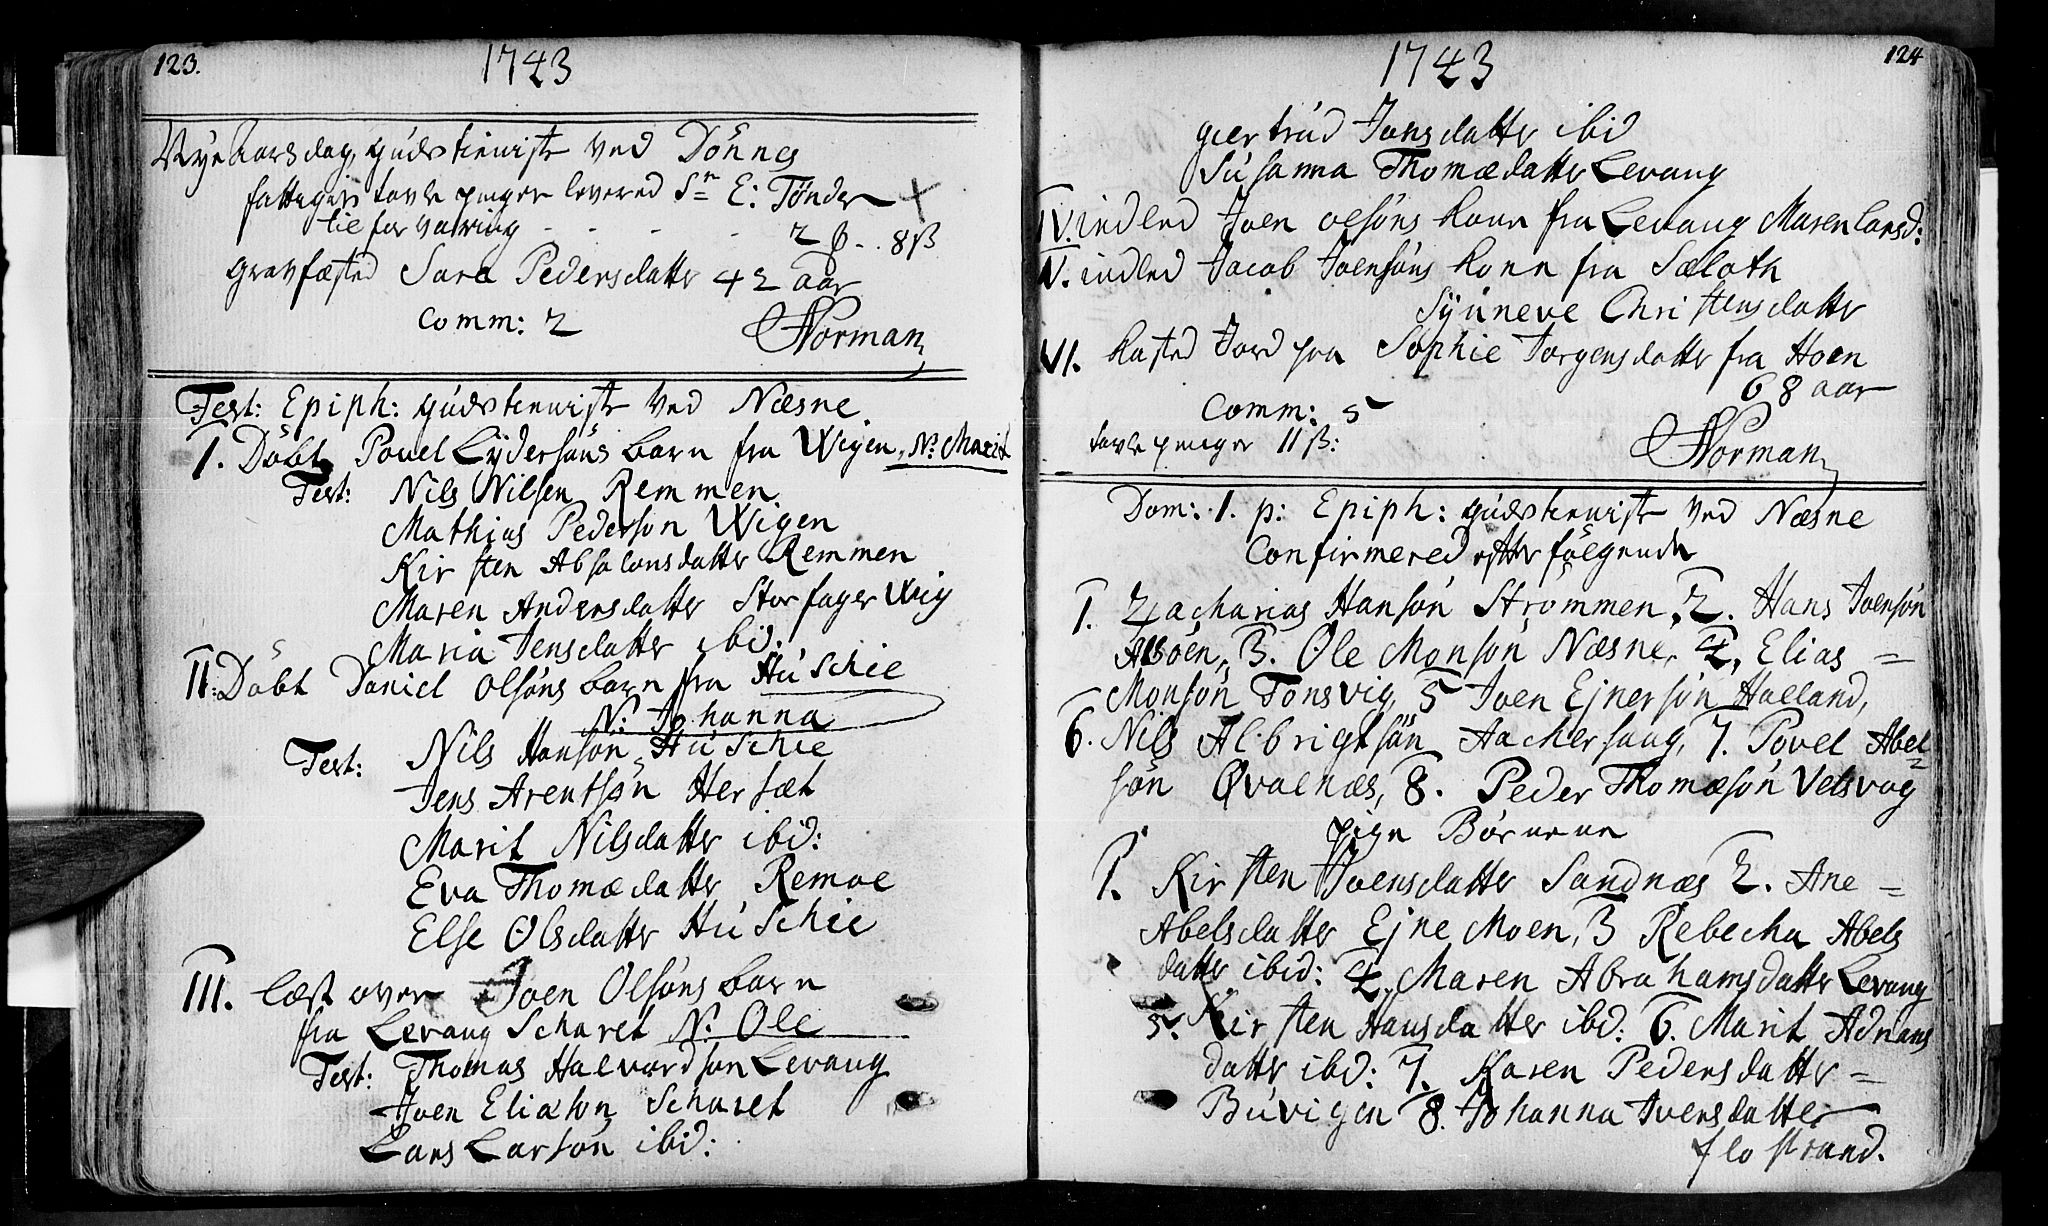 123.
1743
Nye Aarsdag, gudstieniste ved Dönnes
fattiges tavle penger levered Sr E: Tönder
til forvaring - - - - 2 ß.. 8ß
Gravfæsted Sara Pedersdatter 42 aar
Comm: 2
Norman
Fest: Epiph: gudstieniste ved Næsne
I. Döbt Povel Lÿdersöns barn fra Wigen, N: Marit
Test: Nils Nilsen Remmen
Mathias Pederson Wigen
Kirsten Absalonsdatter Remmen
Maren Andersdatter Storfager Wiig
Maria Jensdatter ibid:
II: Döbt Daniel Olsöns barn fra Huschie
N: Johanna
Test: Nils Hansön Huschie
Jens Arentsön Hersæt
Marit Nilsdatter ibid:
Eva Thomædatter Remoe
Else Olsdatter Huschie
III. læst over Joen Olsöns barn
fra Levang Scharet N: Ole
Test: Thomas Halvordson Levang
Joen Eliæson Scharet
Lars Larsön ibid:
1743
124
giertrud Jonsdatter ibid
Susanna Thomædatter Levang
IV. indled Joen Olsöns kone fra Levang Maren Larsd:
V. indled Jacob Joensöns kone fra Sæloth
Sÿnneve Christensdatter
VI. kasted Jord paa Sophie Jorgensdatter fra Hoen
68 aar
Comm: 5
tavle penger 11 ß:
Norman
Dom: 1. p: Epiph: gudstieniste ved Næsne
Confirmered efterfölgende
1. Zacharias Hansön Strömmen, 2. Hans Joensön
Alsöen, 3. Ole Monsön Næsne, 4, Elias =
Monsön Tonsvig, 5 Joen Ejnersön Halland,
6. Nils Albrigtsön Aachersaag, 7. Povel Abel=
sön Qvalnæs, 8. Peder Thomæsön Velsvag
pige Börnene
1. Kirsten Joensdatter Sandnæs 2. Ane =
Abelsdatter Ejne Moen, 3 Rebecha Abels
datter ibid: 4, Maren Abrahamsdatter Levang
5. Kirsten Hansdatter ibd: 6. Marit Adrians
datter ibd: 7. Karen Pedersdatter =
Buvigen 8. Johanna Iversdatter
flostrand.